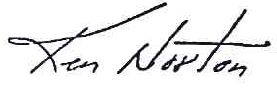 Ken Norton